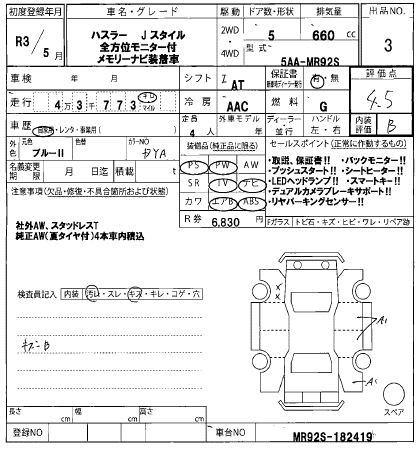 初度登録年月 車名・グレード 駆動 ドア数・形状 排気量 出品NO.
R3/5月
ハスラー Jスタイル
全方位モニター付
メモリーナビ装着車
2WD・4WD 5 660cc 3
型式 5AA-MR92S
車検 年 月 シフト I AT 保証書 有・無 評価点 4.5
走行 4万3千773 キロ マイル 冷房 AAC 燃料 G 内装評価 B
車歴 自家用・レンタ・事業用( ) 定員 4人 外車モデル 年 ディーラー・並行 ハンドル 左・右
色 元色 ブルーII 色替 カラーNO ZYA
装備品(純正品に限る)
PS PW AW
SR TV ナビ
カワ エアB ABS
セールスポイント(正常に作動するもの)
・取説、保証書!! ・バックモニター!!
・プッシュスタート!! ・シートヒーター!!
・LEDヘッドランプ!! ・スマートキー!!
・デュアルカメラブレーキサポート!!
・リヤパーキングセンサー!!
名義変更期限 月 日迄 積載 t
注意事項(欠品・修復・不具合箇所および状態)
R券 6,830円 Fガラス トビ石・キズ・ヒビ・ワレ・リペア跡
社外AW、スタッドレスT
純正AW(夏タイヤ付)4本車内積込
検査員記入 内装 汚れ・スレ・キズ・キレ・コゲ・穴
キズB
A1
A1
スペア
長さ cm 幅 cm 高さ cm
登録NO 車台NO MR92S-182419